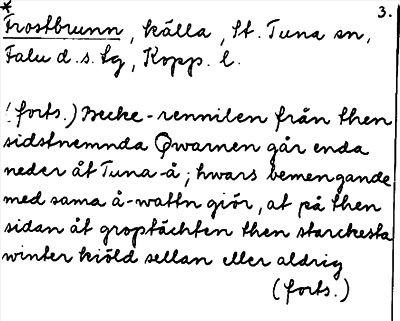 * 3.
Frostbrunn, källa, St. Tuna sn,
Falu d. s. tg, Kopp. l.
(forts.) Becke-rennilen från then
sidstnemnda Qwarnen går enda
neder åt Tuna-å; hwars bemengande
med sama å-wattn giör, at på then
sidan åt groptächten then starckesta
winter kiöld sellan eller aldrig
(forts.)